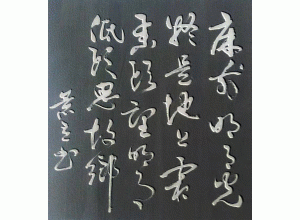 床前明月光
疑是地上霜
举头望明月
低头思故鄉